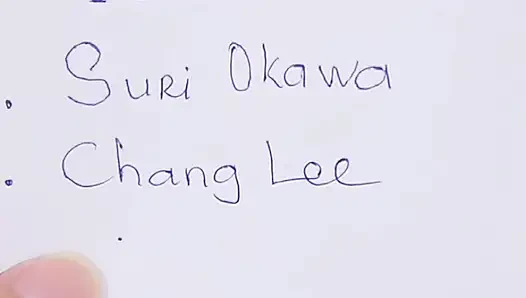 . Suri Okawa
. Chang Lee